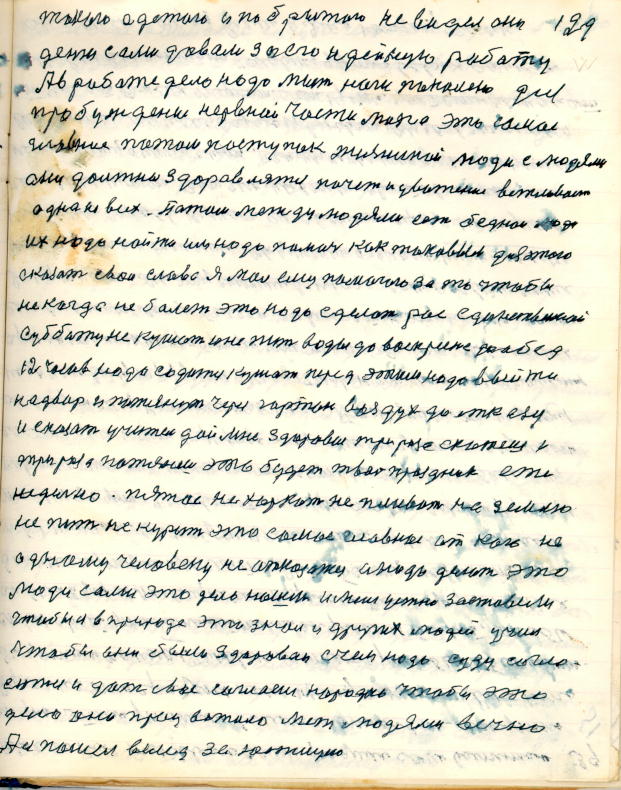 такого одетого и побритого не видел они 129
денги сами давали за его идейную работу
А в работе дело надо мит ноги по колено для
пробуждения нервной части мозга это самое
главное патом поступок жизниной люди с людями
они должни здаравляти почет и уважение вежливост
одна не всх. Патом между людями ест бедной люд
их надо найти им надо памач как таковым для этого
сказат свои слова я мол ему помагаю за то чтобы
некагда не болет это надо сделат рас единственной
субботу не кушат и не пит воды до воскрисне обед
12 часов надо садится кушат перед этим надо выйти
на двор и потянут через гортан воздух до отказу
и сказат учител дай мне здаровя три раза скажеш и
три раза потянеш это будет твой праздник еже
неделно. пятое не харкат не плеват на землю
не пит не курит это самое главное от кого не
одному человеку не откажиш а надо делат это
люди сами это дело нашли и меня устно заставели
чтобы я в природе это знал и других людей учил
чтобы они были здаровая с чем надо суду согла
сится и дат свое согласие народно чтобы это
дело оно процватало меж людями вечно
А я пошел вслед за